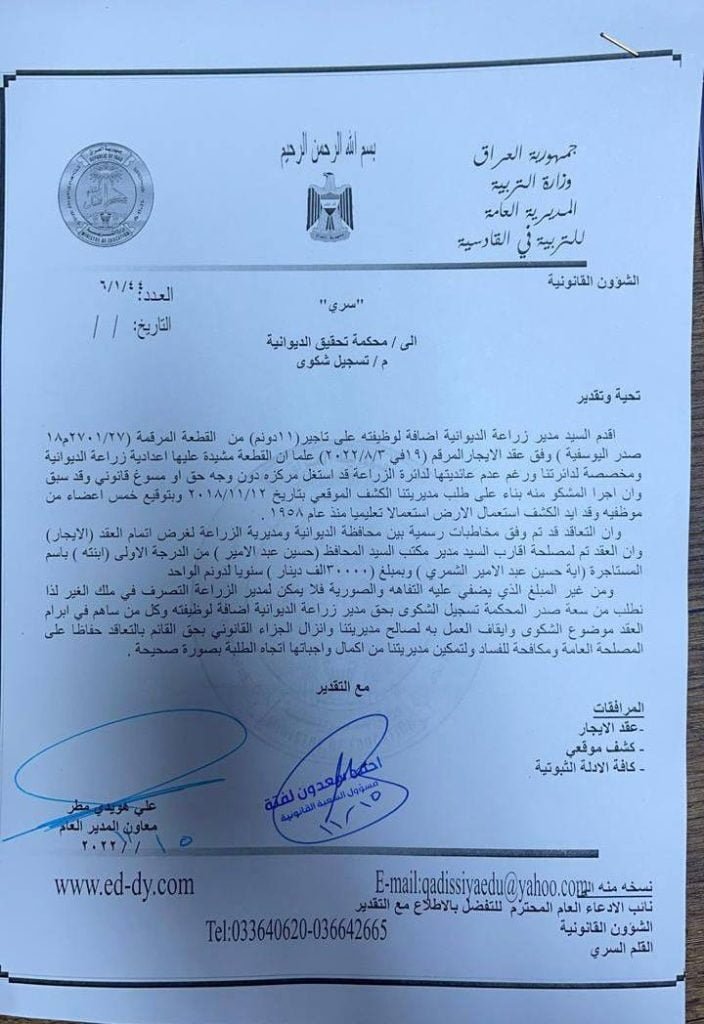 بسم الله الرحمن الرحيم
جمهورية العراق
وزارة التربية
المديرية العامة
للتربية في القادسية
الشؤون القانونية
العدد: ٦/١/٤٤
التاريخ: / /
"سري"
الى / محكمة تحقيق الديوانية
م / تسجيل شكوى
تحية وتقدير
اقدم السيد مدير زراعة الديوانية اضافة لوظيفته على تاجير(١١دونم) من القطعة المرقمة (٢٧٠١/٢٧م١٨
صدر اليوسفية ) وفق عقد الايجارالمرقم (١٩في ٢٠٢٢/٨/٣) علما ان القطعة مشيدة عليها اعدادية زراعة الديوانية
ومخصصة لدائرتنا ورغم عدم عائديتها لدائرة الزراعة قد استغل مركزه دون وجه حق او مسوغ قانوني وقد سبق
وان اجرا المشكو منه بناء على طلب مديريتنا الكشف الموقعي بتاريخ ٢٠١٨/١١/١٢ وبتوقيع خمس اعضاء من
موظفيه وقد ايد الكشف استعمال الارض استعمالا تعليميا منذ عام ١٩٥٨ .
وان التعاقد قد تم وفق مخاطبات رسمية بين محافظة الديوانية ومديرية الزراعة لغرض اتمام العقد (الايجار)
وان العقد تم لمصلحة اقارب السيد مدير مكتب السيد المحافظ (حسين عبد الامير ) من الدرجة الاولى (ابنته ) باسم
المستاجرة (اية حسين عبد الامير الشمري ) وبمبلغ (٣٠٠٠٠الف دينار ) سنويا لدونم الواحد
ومن غير المبلغ الذي يضفي عليه التفاهه والصورية فلا يمكن لمدير الزراعة التصرف في ملك الغير لذا
نطلب من سعة صدر المحكمة تسجيل الشكوى بحق مدير زراعة الديوانية اضافة لوظيفته وكل من ساهم في ابرام
العقد موضوع الشكوى وايقاف العمل به لصالح مديريتنا وانزال الجزاء القانوني بحق القائم بالتعاقد حفاظا على
المصلحة العامة ومكافحة للفساد ولتمكين مديريتنا من اكمال واجباتها اتجاه الطلبة بصورة صحيحة .
مع التقدير
المرافقات
-عقد الايجار
- كشف موقعي
- كافة الادلة الثبوتية
سعدون لفتة
مسؤول الشعبة القانونية
١٢/١٥
علي هويدي مطر
معاون المدير العام
٢٠٢٢/ /١٥
www.ed-dy.com
E-mail:qadissiyaedu@yahoo.com
Tel:033640620-036642665
نسخه منه الى
نائب الادعاء العام المحترم للتفضل بالاطلاع مع التقدير
الشؤون القانونية
القلم السري